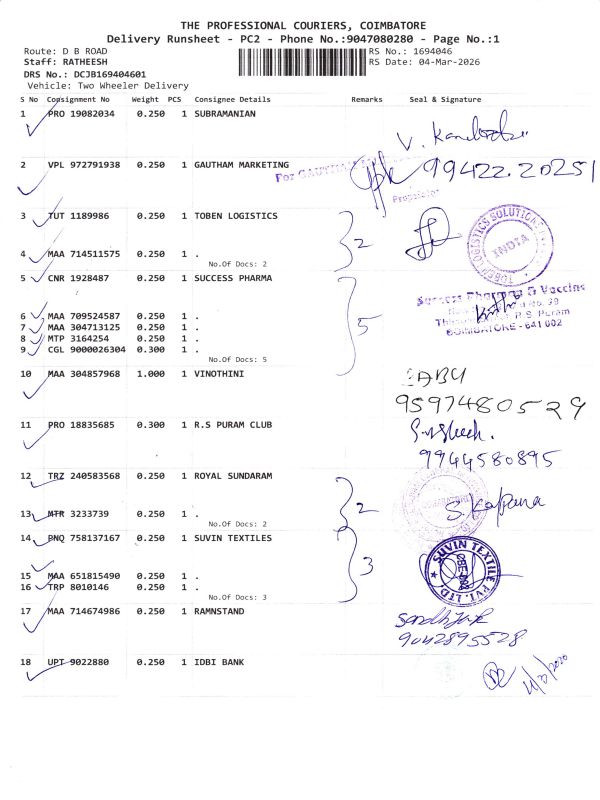 THE PROFESSIONAL COURIERS, COIMBATORE
Delivery Runsheet - PC2 - Phone No.:9047080280 - Page No.:1
Route: D B ROAD RS No.: 1694046
Staff: RATHEESH RS Date: 04-Mar-2026
DRS No.: DCJB169404601
Vehicle: Two Wheeler Delivery
S No Consignment No Weight PCS Consignee Details Remarks Seal & Signature
1 PRO 19082034 0.250 1 SUBRAMANIAN
V.
2 VPL 972791938 0.250 1 GAUTHAM MARKETING
For GAUTHAM 99422 20251
Proprietor
3 TUT 1189986 0.250 1 TOBEN LOGISTICS
2
TOBEN LOGISTICS SOLUTIONS
INDIA
4 MAA 714511575 0.250 1 .
No.Of Docs: 2
5 CNR 1928487 0.250 1 SUCCESS PHARMA
Success Pharma & Vaccins
No. 39
R.S. Puram
COIMBATORE - 641 002
5
6 MAA 709524587 0.250 1 .
7 MAA 304713125 0.250 1 .
8 MTP 3164254 0.250 1 .
9 CGL 9000026304 0.300 1 .
No.Of Docs: 5
10 MAA 304857968 1.000 1 VINOTHINI
BABU
9597480529
11 PRO 18835685 0.300 1 R.S PURAM CLUB
9944580895
12 TRZ 240583568 0.250 1 ROYAL SUNDARAM
2
S. Kalpana
13 MTR 3233739 0.250 1 .
No.Of Docs: 2
14 PNQ 758137167 0.250 1 SUVIN TEXTILES
3
SUVIN TEXTILE PVT. LTD
CBE-002
15 MAA 651815490 0.250 1 .
16 TRP 8010146 0.250 1 .
No.Of Docs: 3
17 MAA 714674986 0.250 1 RAMNSTAND
9042895528
18 UPT 9022880 0.250 1 IDBI BANK